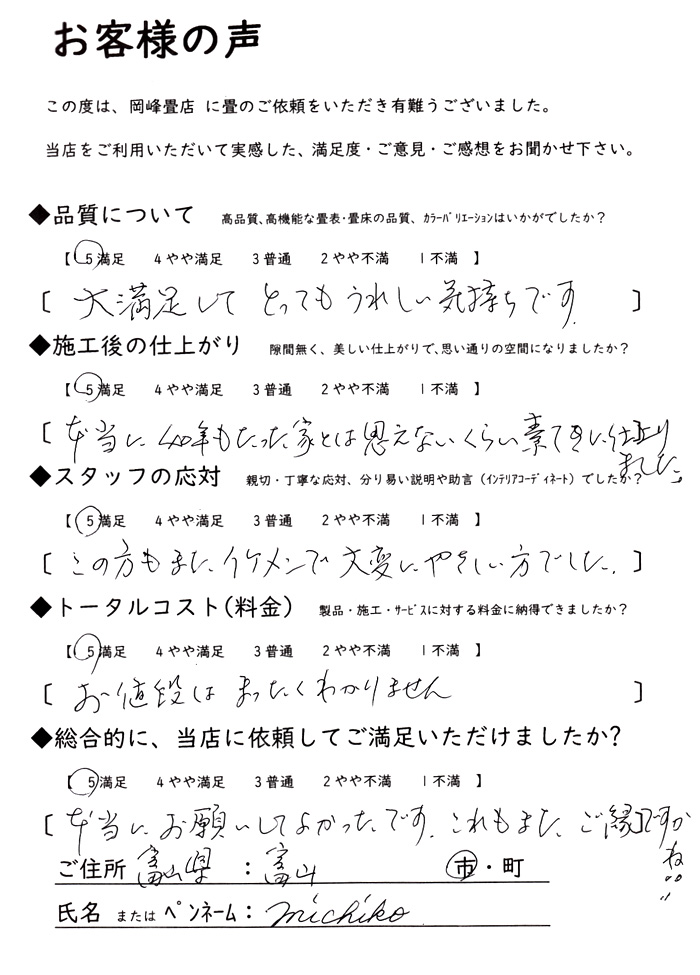 お客様の声
この度は、岡峰畳店 に畳のご依頼をいただき有難うございました。
当店をご利用いただいて実感した、満足度・ご意見・ご感想をお聞かせ下さい。
◆品質について 高品質、高機能な畳表・畳床の品質、カラーバリエーションはいかがでしたか？
【 5満足 4やや満足 3普通 2やや不満 1不満 】
[ 大満足して とってもうれしい気持ちです. ]
◆施工後の仕上がり 隙間無く、美しい仕上がりで、思い通りの空間になりましたか？
【 5満足 4やや満足 3普通 2やや不満 1不満 】
[ 本当に 40年もたった家とは思えないくらい素てきに仕上り
ました。
◆スタッフの応対 親切・丁寧な応対、分り易い説明や助言（インテリアコーディネート）でしたか？
【 5満足 4やや満足 3普通 2やや不満 1不満 】
[ この方もまた イケメンで 大変にやさしい方でした. ]
◆トータルコスト(料金) 製品・施工・サービスに対する料金に納得できましたか？
【 5満足 4やや満足 3普通 2やや不満 1不満 】
[ お値段は まったくわかりません ]
◆総合的に、当店に依頼してご満足いただけましたか?
【 5満足 4やや満足 3普通 2やや不満 1不満 】
[ 本当に お願いしてよかったです. これもまた ご縁]ですか
ね!!
ご住所 富山県 : 富山 市・町
氏名 または ペンネーム: michiko